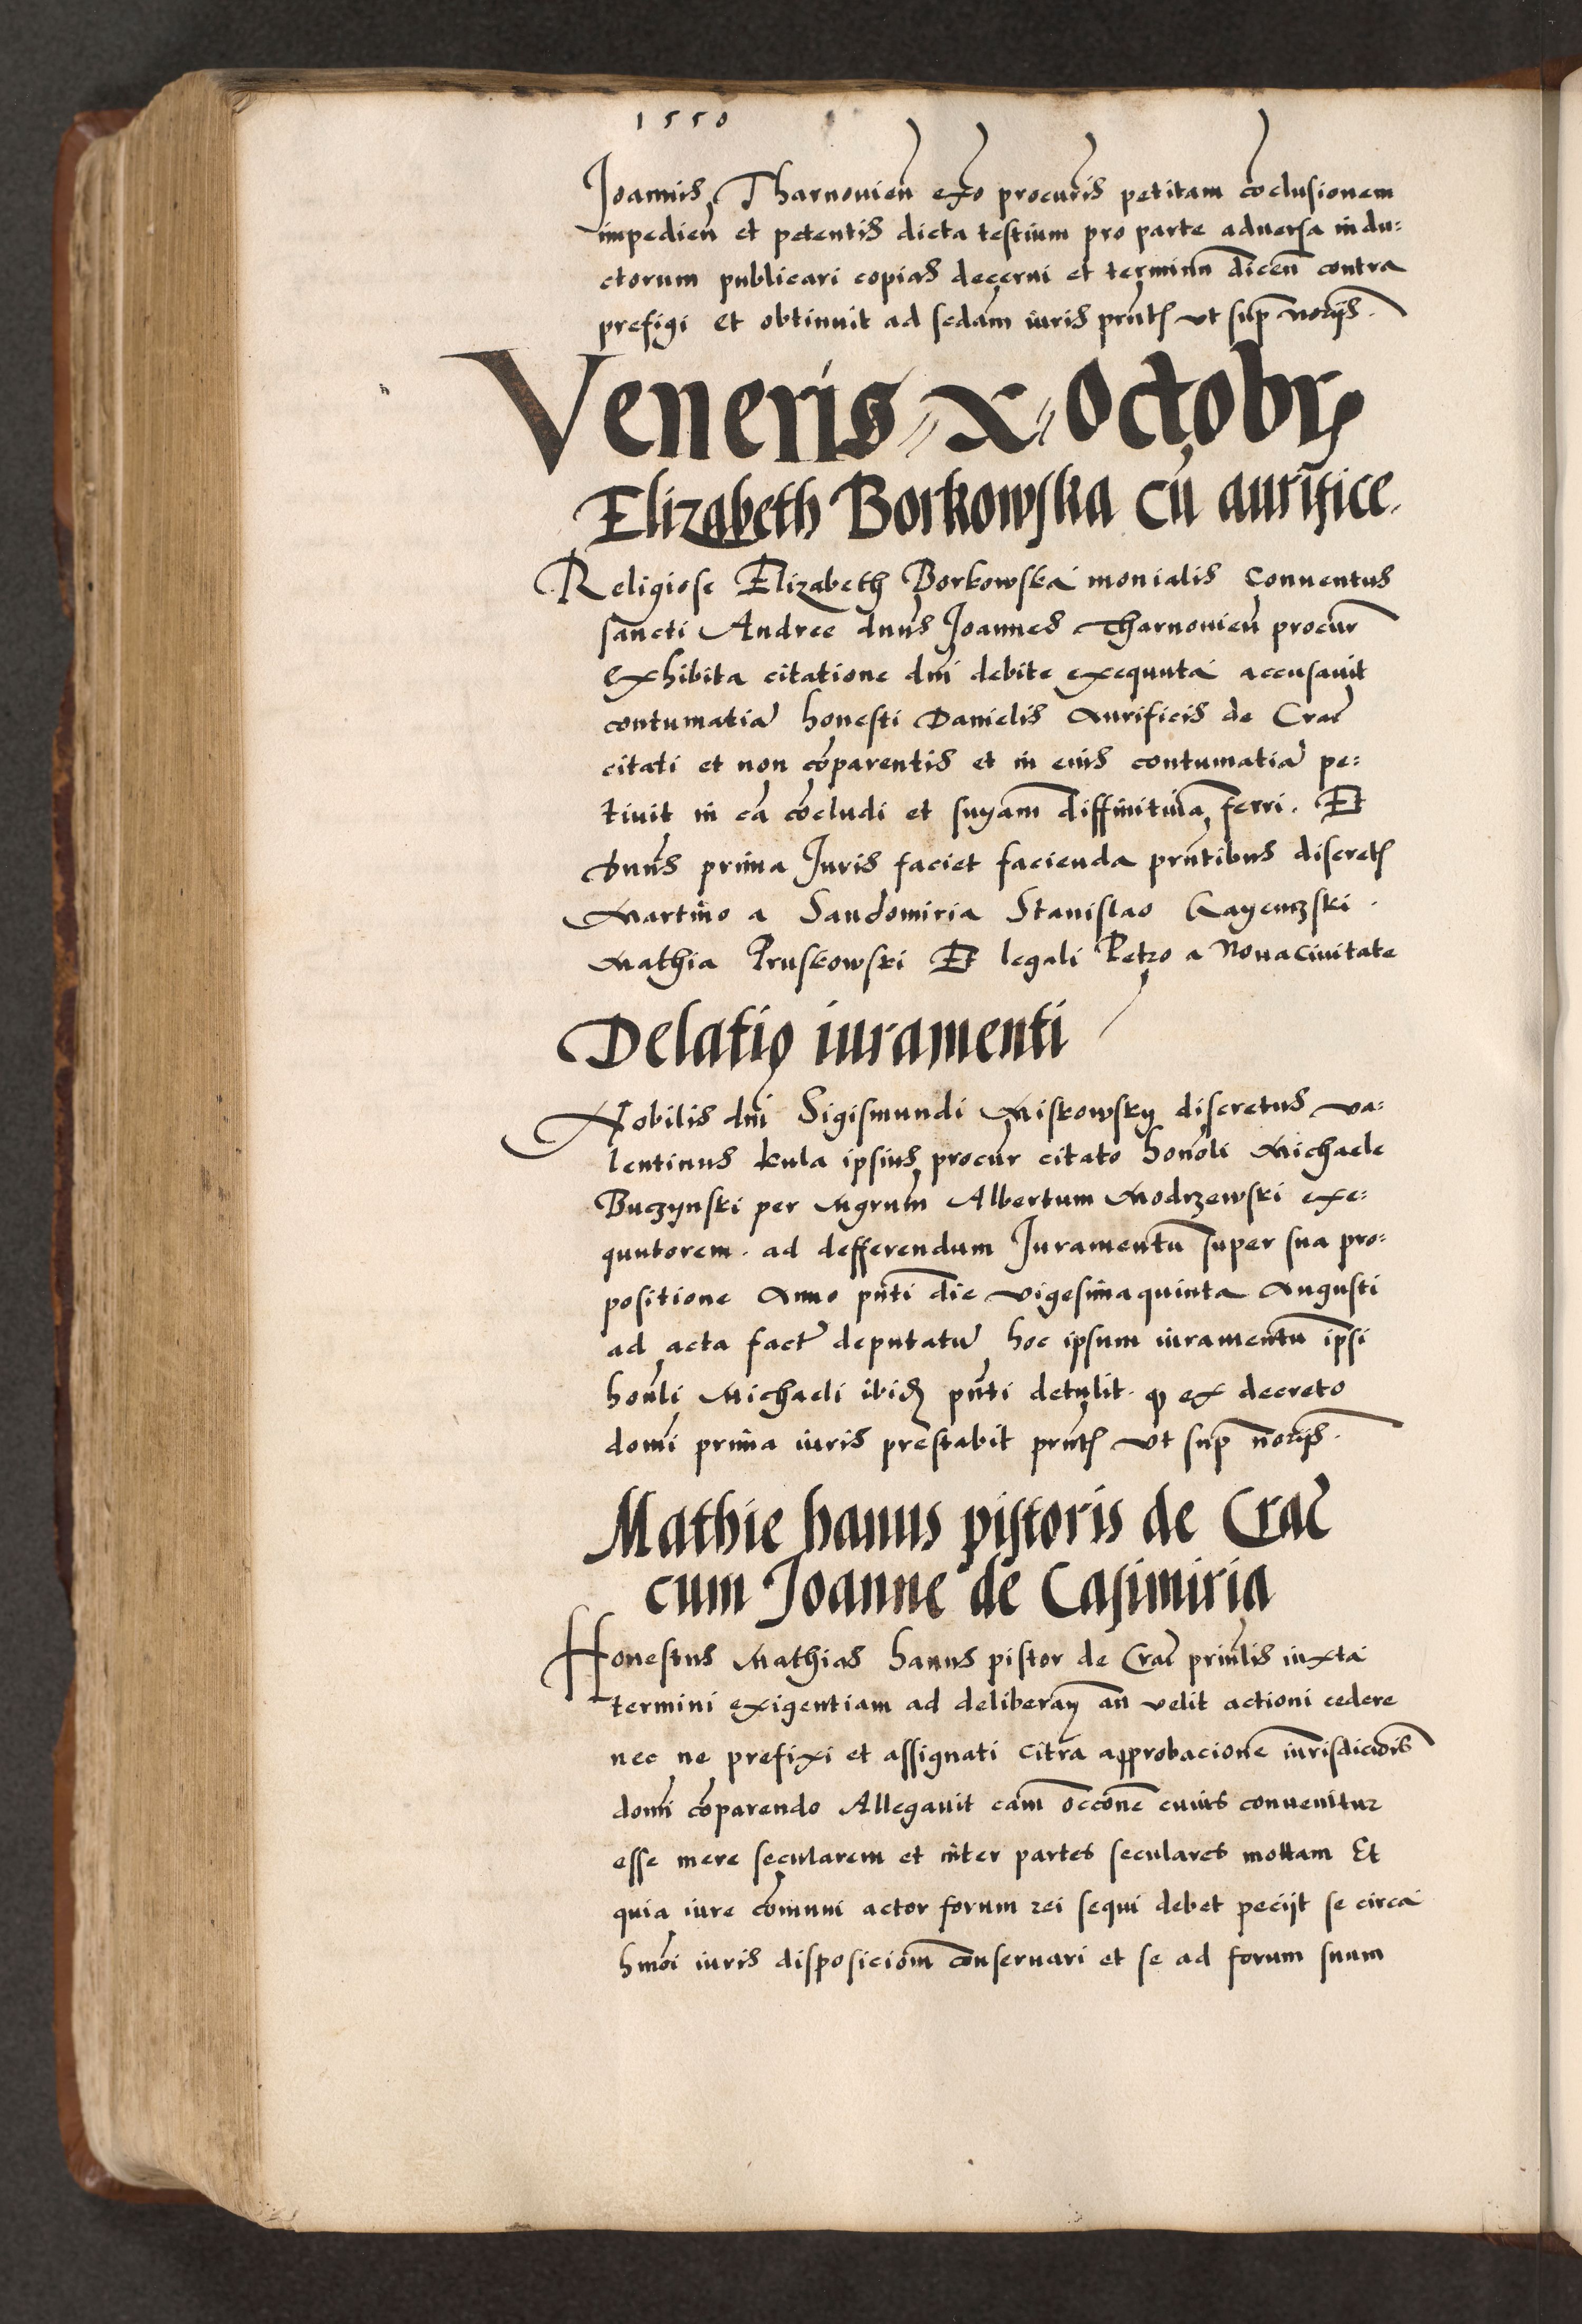 1550
Joannis Tharnovien̄ exo procuris petitam cōclusionem
impedien̄ et petentis dicta testium pro parte adversa indu:
ctorum publicari copias decerni et terminū dicen̄ contra
prefigi et obtinuit ad sedam iuris prn̄t ut sup noriis.
Veneris x Octobr
Elizabeth Borkowska cū aurifice.
Religiose Elizabeth Borkowska monialis Conventus
sancti Andree dnūs Joannes Tharnovien̄ procur̄
exhibita citatione dnī debite exequuta accusavit
contumatiā honesti Danielis Aurificis de Crac̄
citati et non cōparentis et in eius contumatiā pe:
tivit in cā cōcludi et snyam̄ diffinitivā ferri. Et
Dnūs prima Juris faciet facienda prn̄tibus discret
Martino a Sandomiria Stanislao Kayenczski.
Mathia Pruskowski Et legali Petro a Novacivitate
Delatio iuramenti
Nobilis dnī Sigismundi Miskowsky discretus va:
lentinus kula ipsius procur̄ citato honōli Michaele
Buczynski per Mgrum̄ Albertum Modrzewski exe:
quutorem. ad defferendum Juramentū super sua pro:
positione Anno pn̄ti die vigesimaquinta Augusti
ad acta fact̄ deputatū hoc ipsum iuramentū ipsi
honōli Michaeli ibid pn̄ti detulit. q ex decreto
domī prima iuris prestabit prn̄t ut sup noriis.
Mathie hanus pistoris de Crac̄
cum Joanne de Casimiria
Honestus Mathias hanus pistor de Crac̄ prin̄lis iuxta
termini exigentiam ad deliberan̄ an velit actioni cedere
nec ne prefixi et assignati citra approbacione iurisdicidis
domī cōparendo Allegavit cam̄ occōne cuius convenitur
esse mere secularem et inter partes seculares mottam Et
quia iure cōmuni actor forum rei sequi debet peciit se circa
hmōi iuris disposiciom̄ conservari et se ad forum suum